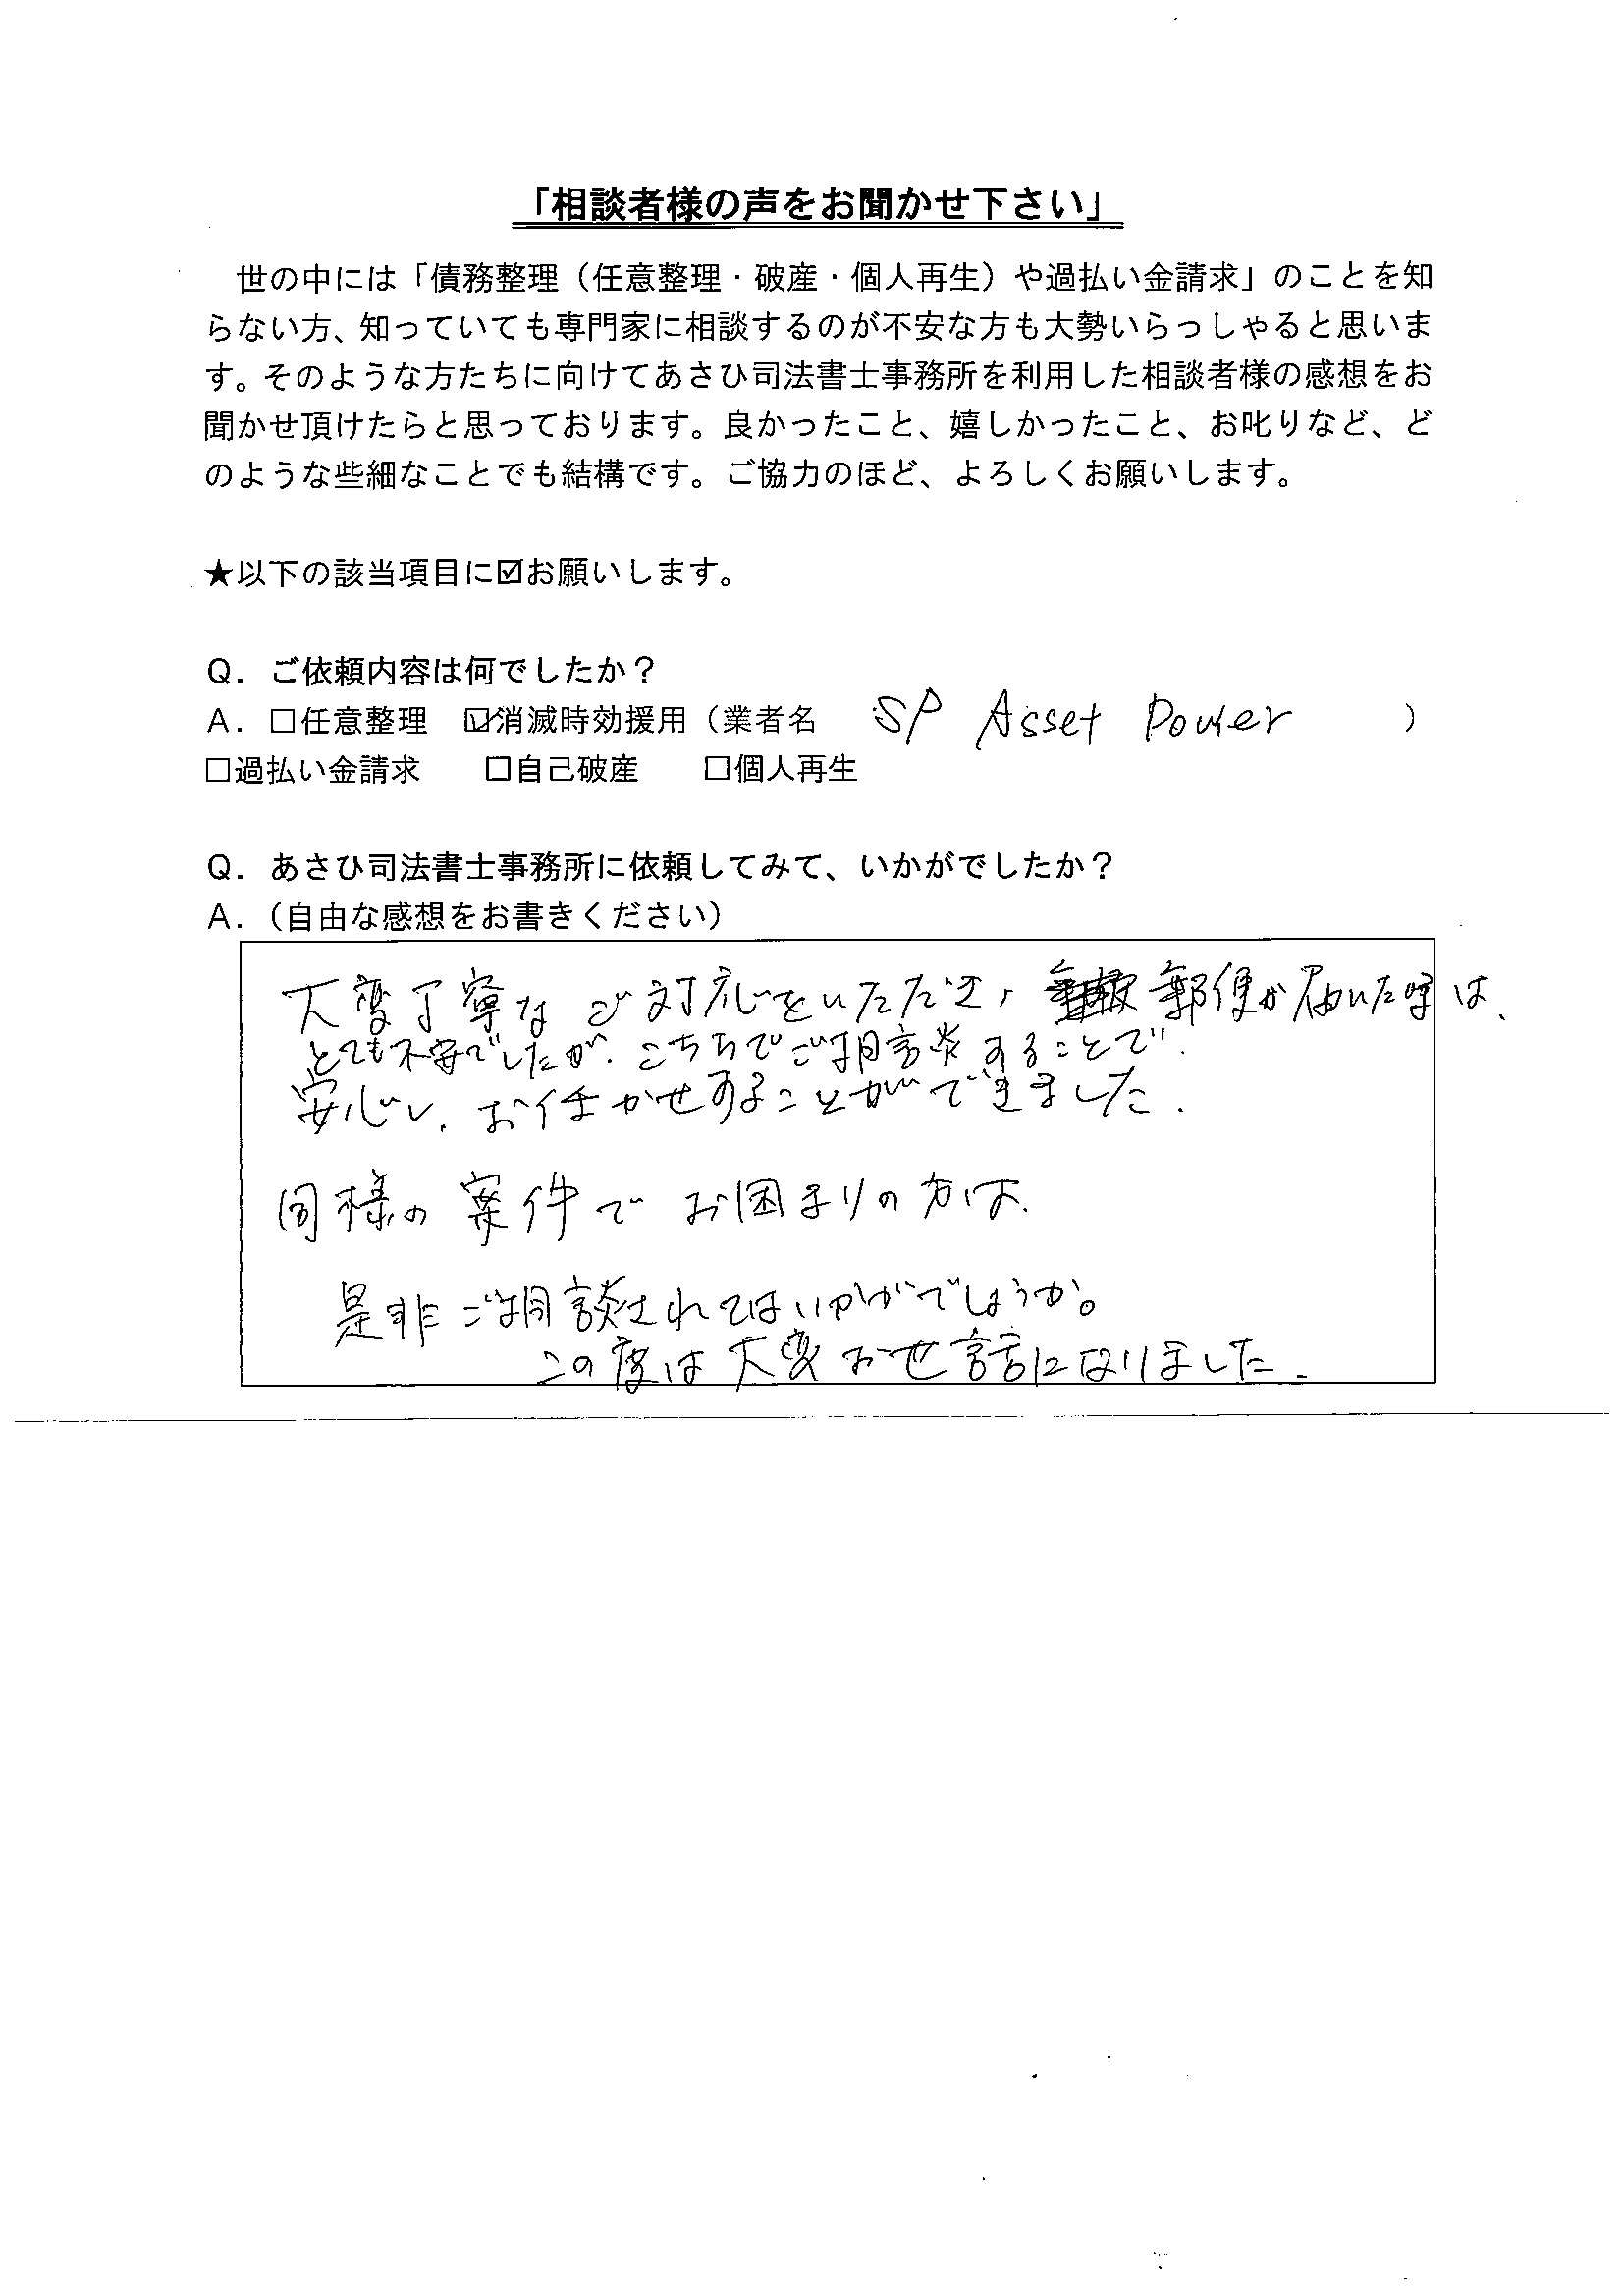 「相談者様の声をお聞かせ下さい」
世の中には「債務整理（任意整理・破産・個人再生）や過払い金請求」のことを知
らない方、知っていても専門家に相談するのが不安な方も大勢いらっしゃると思いま
す。そのような方たちに向けてあさひ司法書士事務所を利用した相談者様の感想をお
聞かせ頂けたらと思っております。良かったこと、嬉しかったこと、お叱りなど、ど
のような些細なことでも結構です。ご協力のほど、よろしくお願いします。
★以下の該当項目に☑お願いします。
Q．ご依頼内容は何でしたか？
A．□任意整理　☑消滅時効援用（業者名　SP Asset Power　）
□過払い金請求　□自己破産　□個人再生
Q．あさひ司法書士事務所に依頼してみて、いかがでしたか？
A．（自由な感想をお書きください）
大変丁寧なご対応をいただき、郵便が届いた時は、
とても不安でしたが、こちらでご相談することで、
安心し、お任かせすることができました.
同様の案件でお困まりの方は、
是非ご相談されてはいかがでしょうか。
この度は大変お世話になりました.